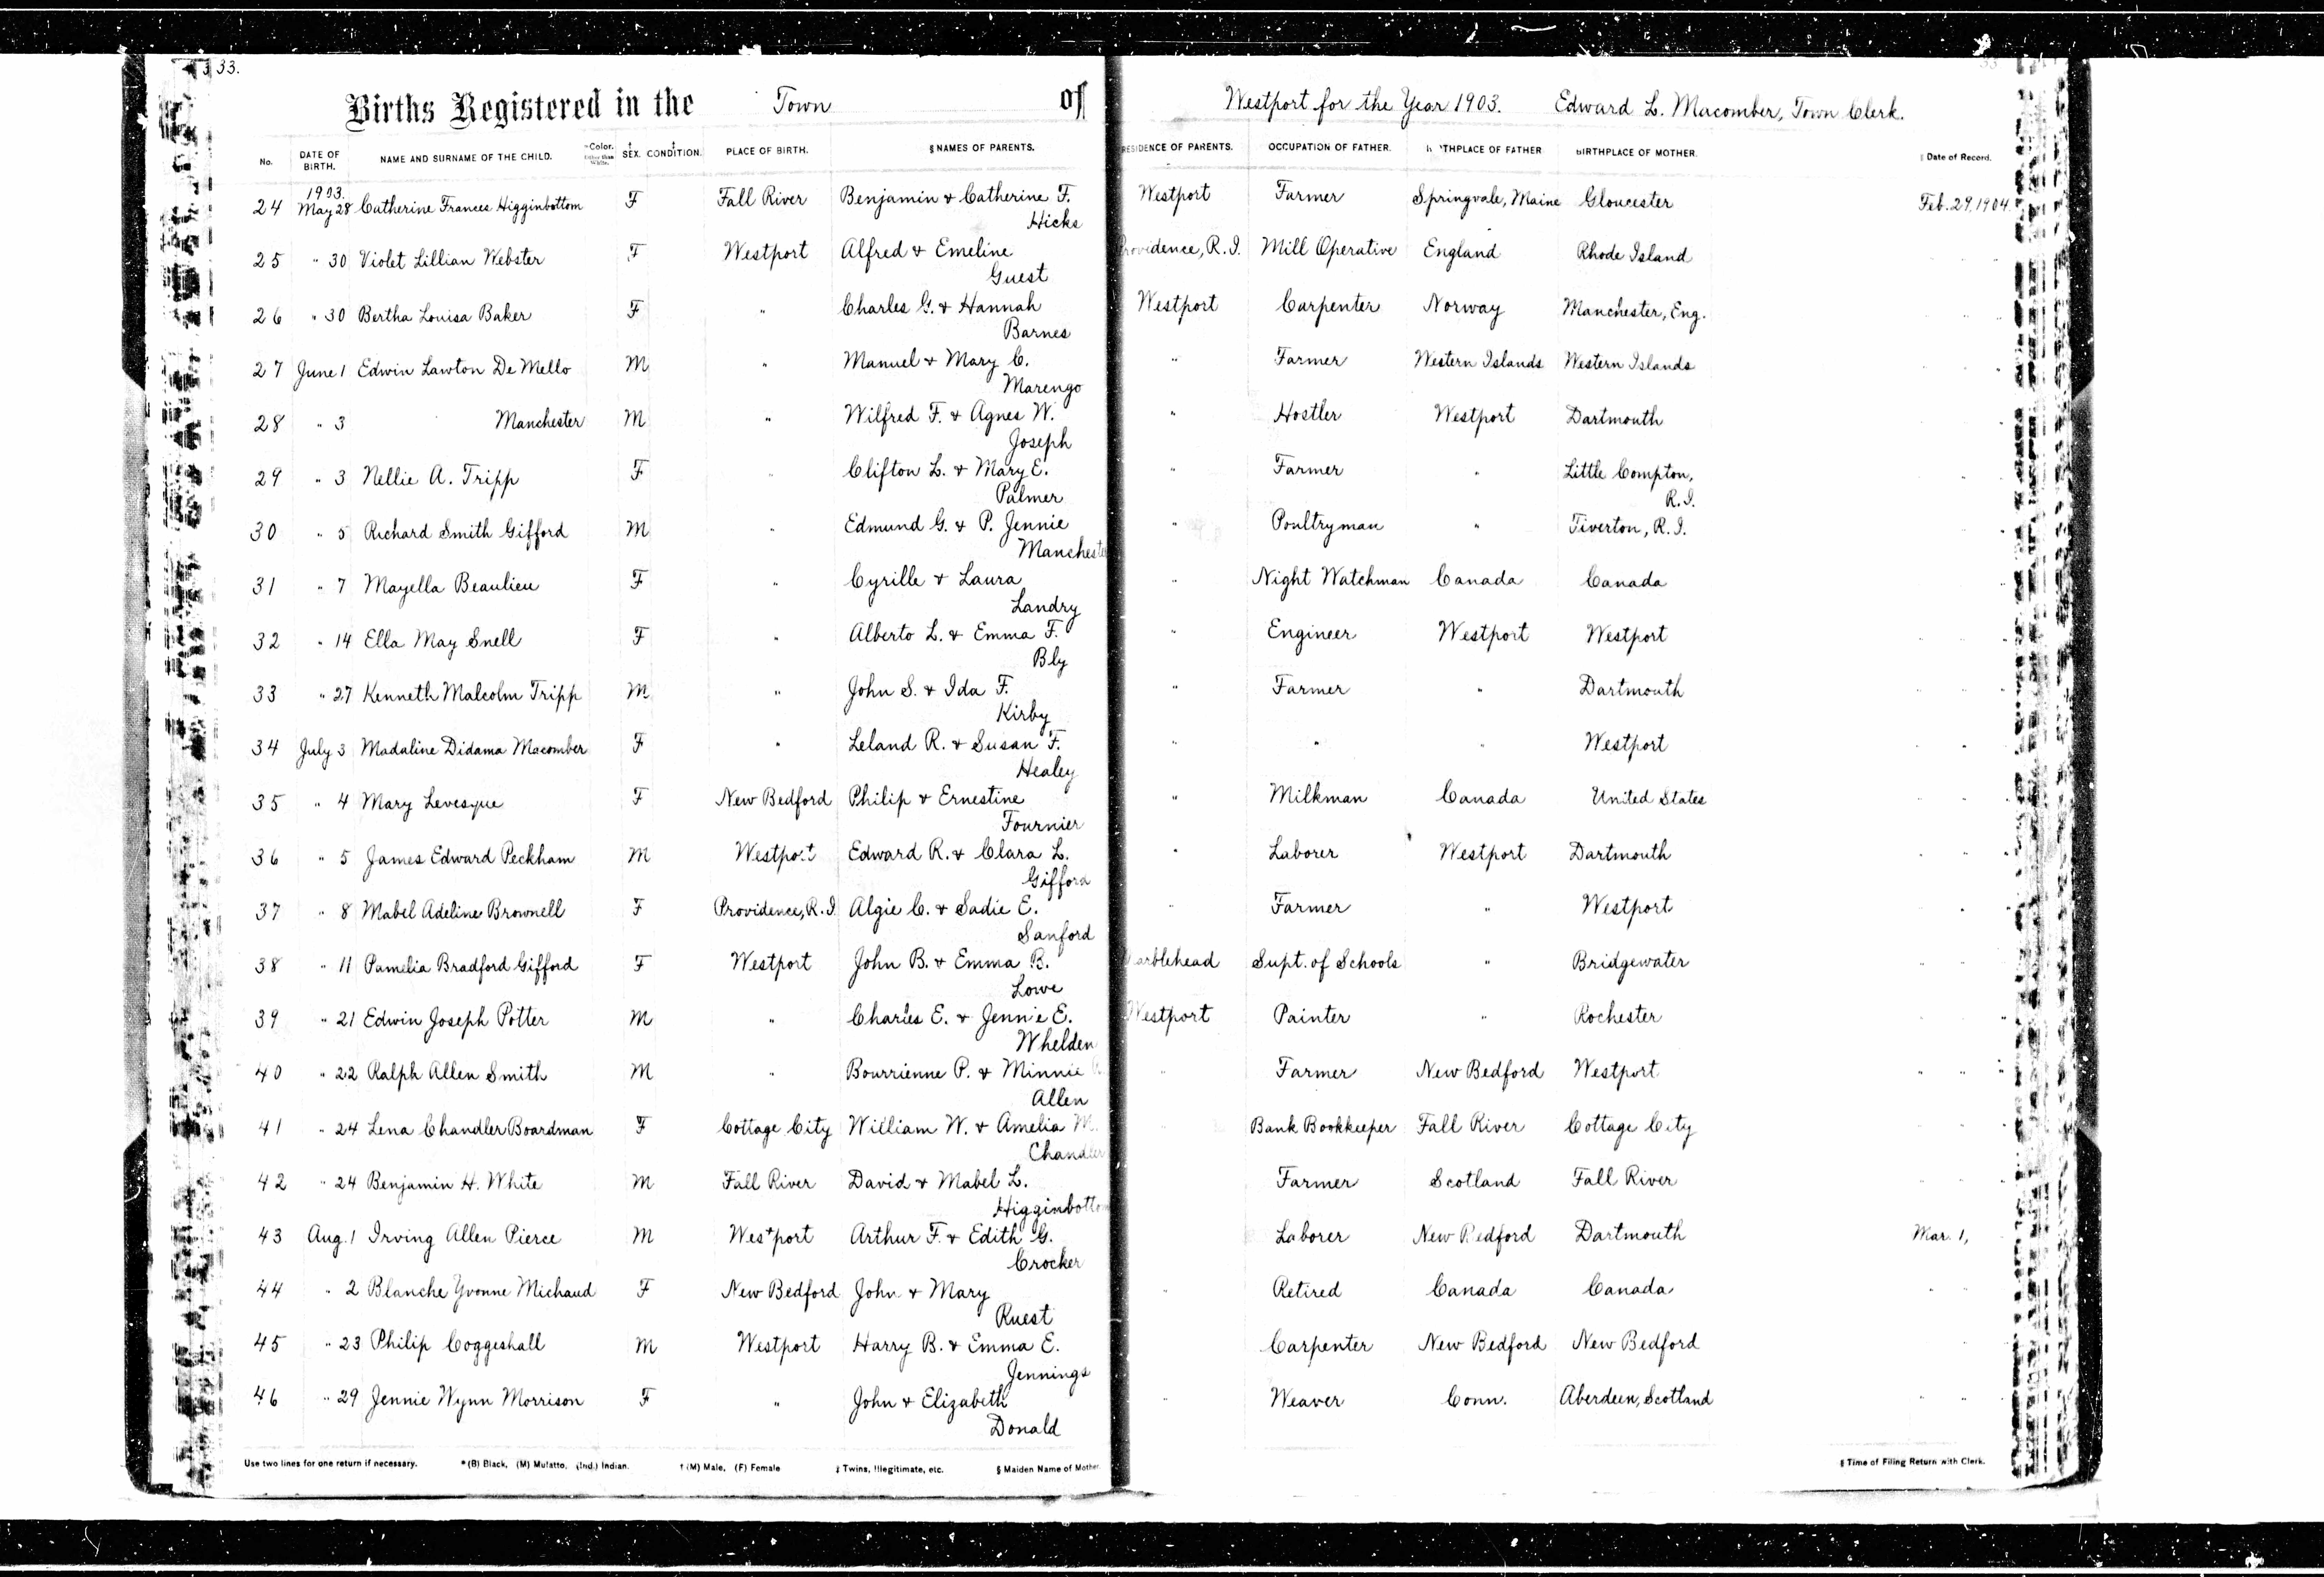 33.
Births Registered in the Town of Westport for the Year 1903. Edward L. Macomber, Town Clerk.
No. DATE OF BIRTH. NAME AND SURNAME OF THE CHILD. *Color. Other than White. †SEX. ‡CONDITION. PLACE OF BIRTH. § NAMES OF PARENTS. RESIDENCE OF PARENTS. OCCUPATION OF FATHER. BIRTHPLACE OF FATHER BIRTHPLACE OF MOTHER. Date of Record.
1903.
24 May 28 Catherine Frances Higginbottom F Fall River Benjamin & Catherine F. Westport Farmer Springvale, Maine Gloucester Feb. 29, 1904.
Hicks
25 " 30 Violet Lillian Webster F Westport Alfred & Emeline Providence, R.I. Mill Operative England Rhode Island
Guest
26 " 30 Bertha Louisa Baker F " Charles G. & Hannah Westport Carpenter Norway Manchester, Eng. " "
Barnes
27 June 1 Edwin Lawton De Mello M " Manuel & Mary C. " Farmer Western Islands Western Islands " "
Marengo
28 " 3 Manchester M " Wilfred F. & Agnes W. " Hostler Westport Dartmouth " "
Joseph
29 " 3 Nellie A. Tripp F " Clifton L. & Mary E. " Farmer " Little Compton, " "
Palmer R.I.
30 " 5 Richard Smith Gifford M " Edmund G. & P. Jennie " Poultryman " Tiverton, R.I. " "
Manchester
31 " 7 Mayella Beaulieu F " Cyrille & Laura " Night Watchman Canada Canada " "
Landry
32 " 14 Ella May Snell F " Alberto L. & Emma F. " Engineer Westport Westport " "
Bly
33 " 27 Kenneth Malcolm Tripp M " John S. & Ida F. " Farmer " Dartmouth " "
Kirby
34 July 3 Madaline Didama Macomber F " Leland R. & Susan F. " " " Westport " "
Healey
35 " 4 Mary Levesque F New Bedford Philip & Ernestine " Milkman Canada United States " "
Fournier
36 " 5 James Edward Peckham M Westport Edward R. & Clara L. " Laborer Westport Dartmouth " "
Gifford
37 " 8 Mabel Adeline Brownell F Providence, R.I. Algie C. & Sadie E. " Farmer " Westport " "
Sanford
38 " 11 Pamelia Bradford Gifford F Westport John B. & Emma B. Marblehead Supt. of Schools " Bridgewater " "
Lowe
39 " 21 Edwin Joseph Potter M " Charles E. & Jennie E. Westport Painter " Rochester " "
Whelden
40 " 22 Ralph Allen Smith M " Bourrienne P. & Minnie " Farmer New Bedford Westport " "
Allen
41 " 24 Lena Chandler Boardman F Cottage City William W. & Amelia M. " Bank Bookkeeper Fall River Cottage City " "
Chandler
42 " 24 Benjamin H. White M Fall River David & Mabel L. Farmer Scotland Fall River " "
Higginbottom
43 Aug. 1 Irving Allen Pierce M Westport Arthur F. & Edith G. Laborer New Bedford Dartmouth Mar. 1,
Crocker
44 " 2 Blanche Yvonne Michaud F New Bedford John & Mary " Retired Canada Canada " "
Ruest
45 " 23 Philip Coggeshall M Westport Harry B. & Emma E. Carpenter New Bedford New Bedford "
Jennings
46 " 29 Jennie Wynn Morrison F " John & Elizabeth " Weaver Conn. Aberdeen, Scotland " "
Donald
Use two lines for one return if necessary. *(B) Black, (M) Mulatto, (Ind.) Indian. † (M) Male, (F) Female ‡ Twins, Illegitimate, etc. § Maiden Name of Mother. Time of Filing Return with Clerk.